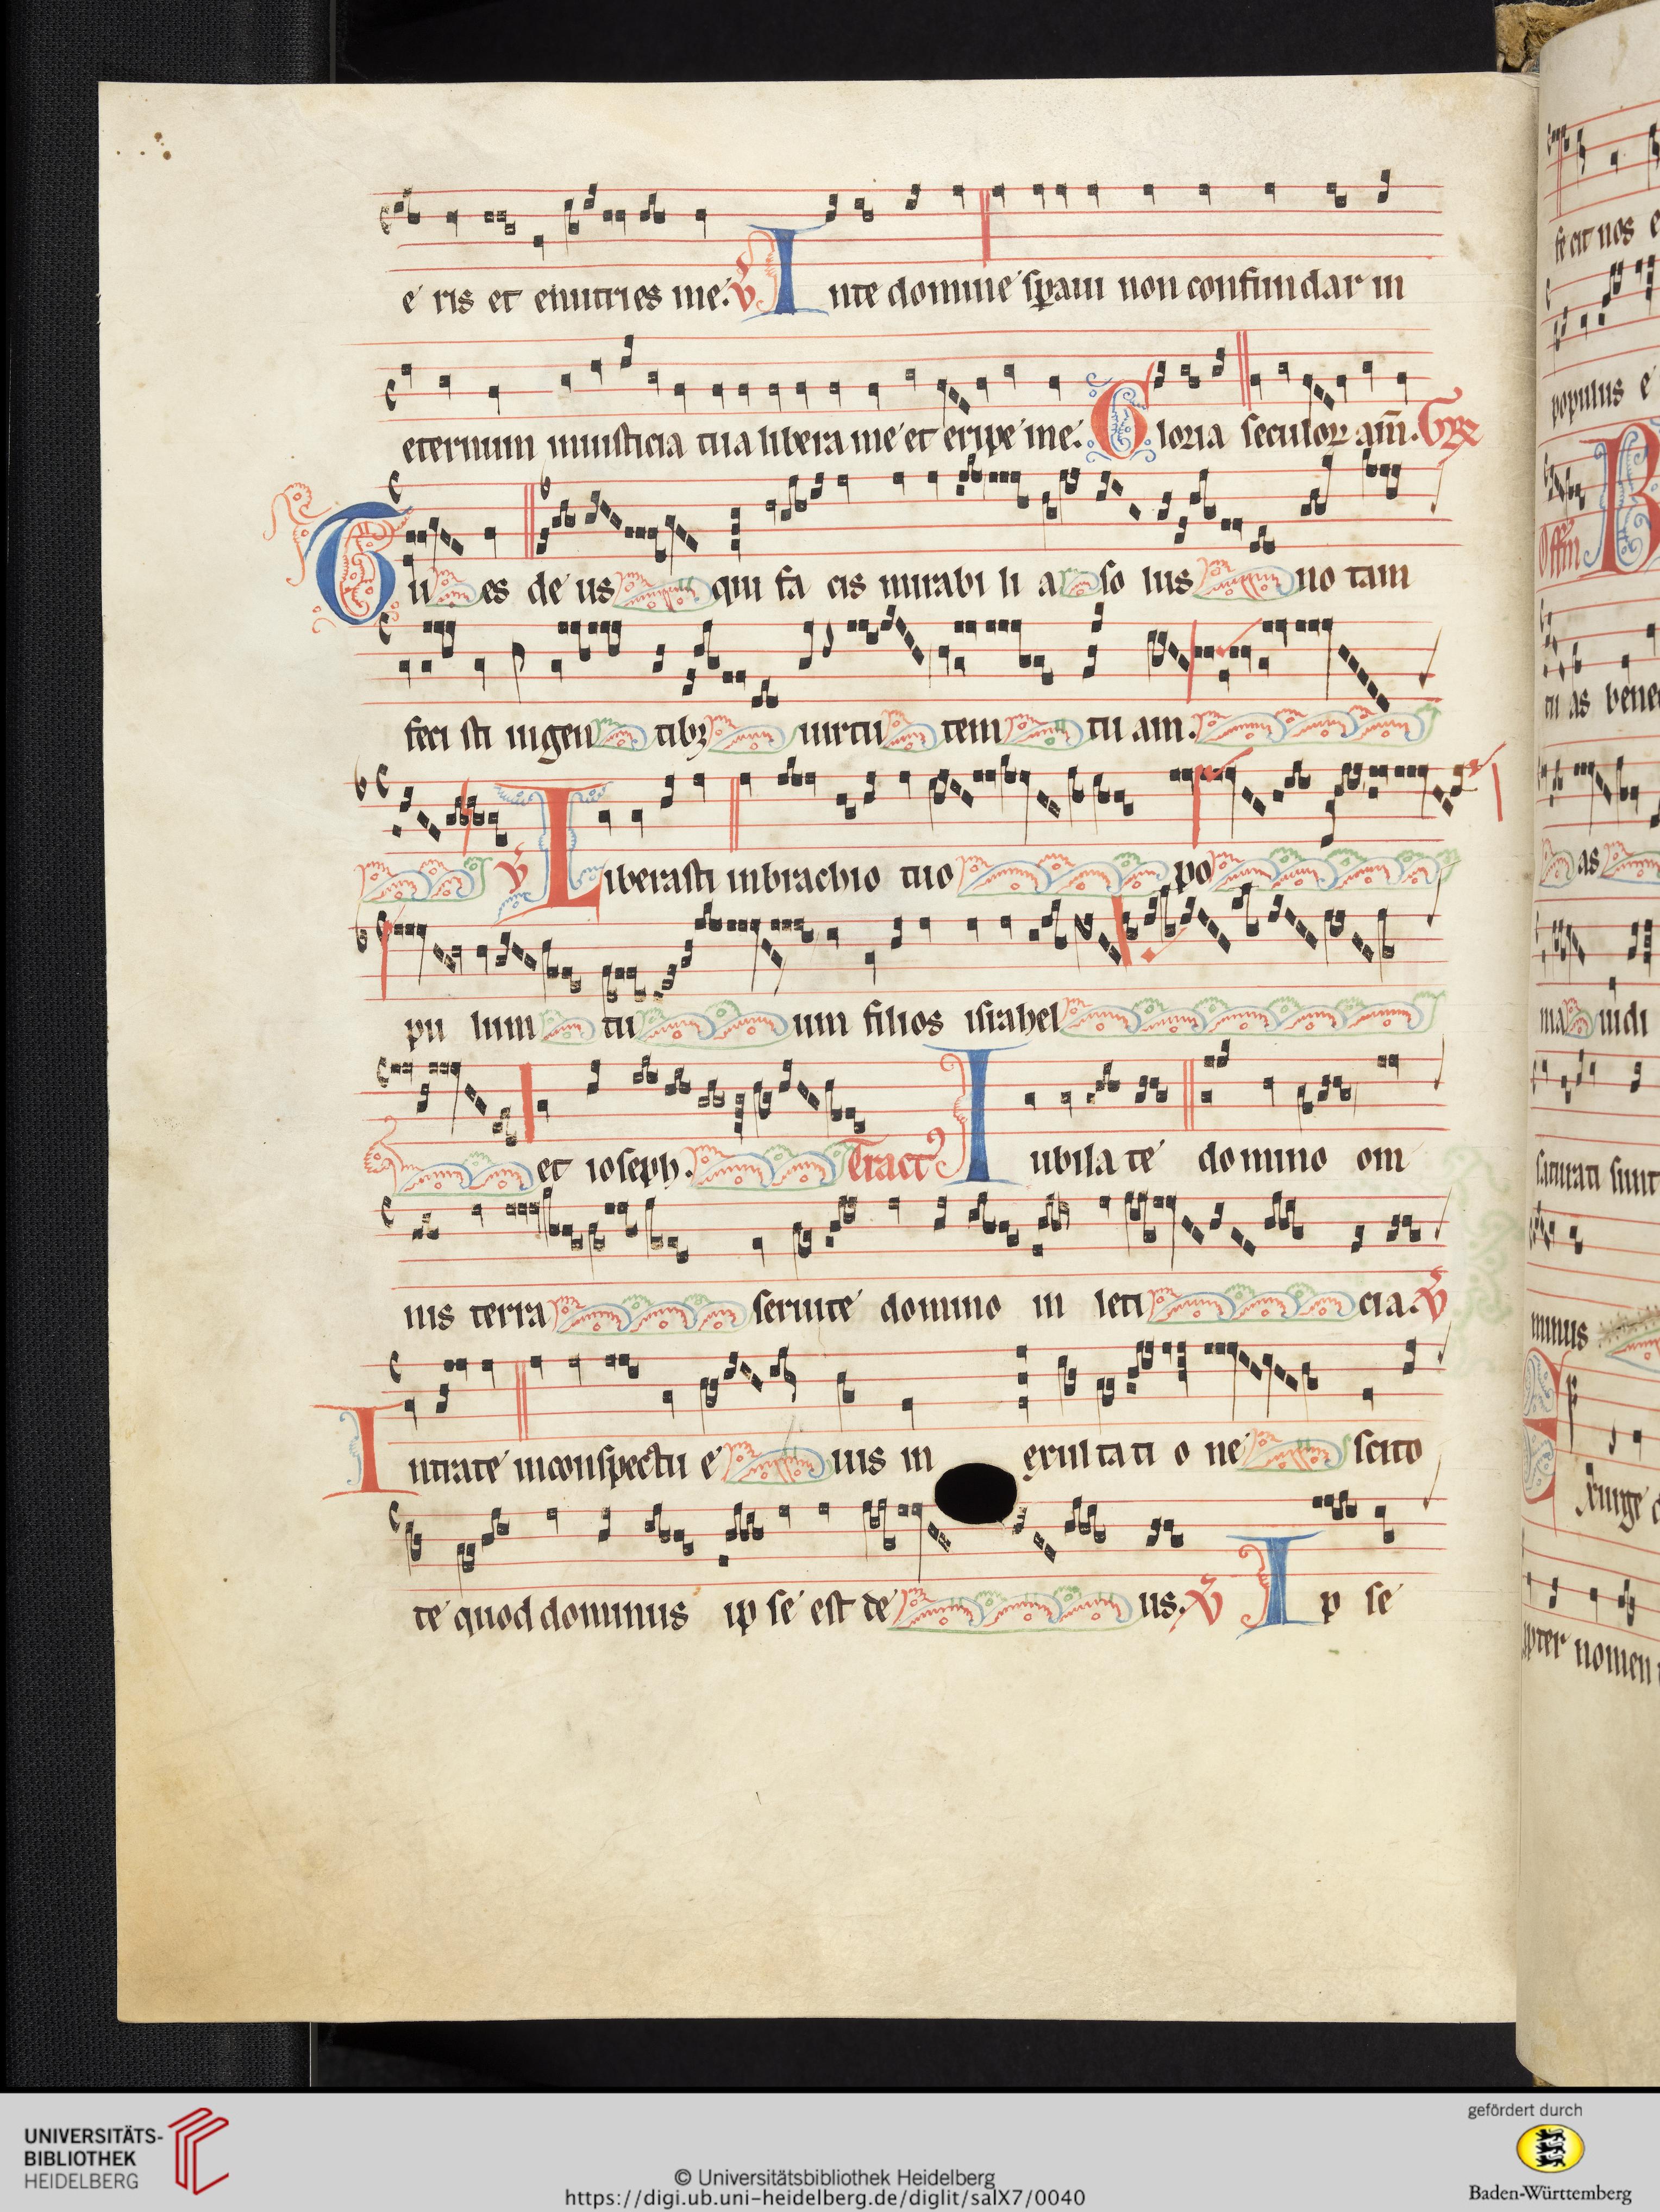 e ris et enutri es me. V In te domine speraui non confundar in
eternum iniusticia tua libera me et eripe me. Gloria seculorum am̄. Gꝶ
Tu es de us qui fa cis mirabi li a so lus no tam
feci sti ingen tibꝫ uirtu tem tu am.
V Liberasti inbrachio tuo po
pu lum tu um filios israhel
et ioseph. Tractꝰ Iubila te domino om
nis terra seruite domino in leti cia. V
Intrate inconspectu e ius in exulta ti o ne scito
te quod dominus ip se est de us. V Ip se
fe cit nos e
populus e
Offm B
tu as bene
as
ma ndi
saturati sunt
minus
Exurge
pter nomen
UNIVERSITÄTS-
BIBLIOTHEK
HEIDELBERG
© Universitätsbibliothek Heidelberg
https://digi.ub.uni-heidelberg.de/diglit/salX7/0040
gefördert durch
Baden-Württemberg